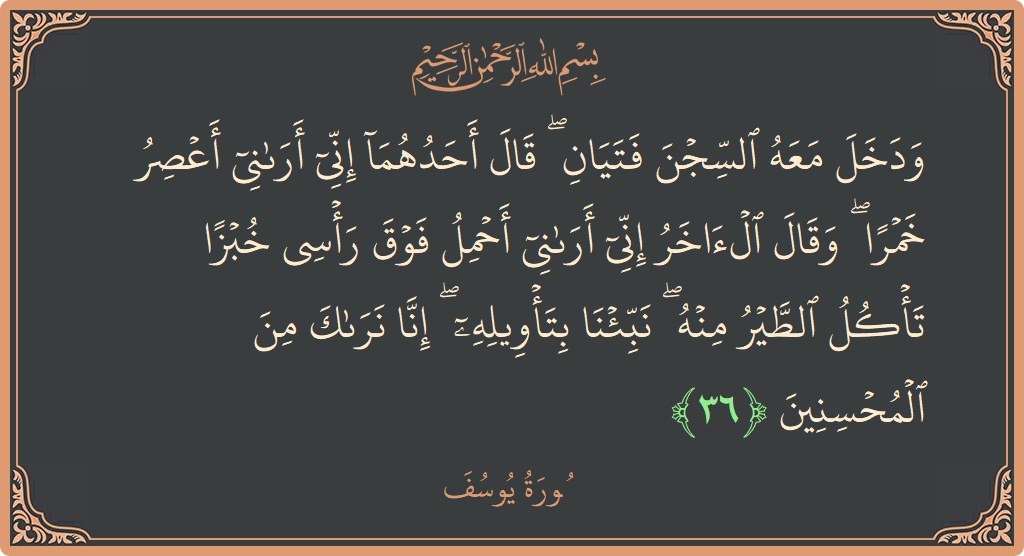 بِسْمِ اللَّهِ الرَّحْمَٰنِ الرَّحِيمِ
وَدَخَلَ مَعَهُ ٱلسِّجْنَ فَتَيَانِ ۖ قَالَ أَحَدُهُمَآ إِنِّىٓ أَرَىٰنِىٓ أَعْصِرُ
خَمْرًا ۖ وَقَالَ ٱلْءَاخَرُ إِنِّىٓ أَرَىٰنِىٓ أَحْمِلُ فَوْقَ رَأْسِى خُبْزًا
تَأْكُلُ ٱلطَّيْرُ مِنْهُ ۖ نَبِّئْنَا بِتَأْوِيلِهِۦٓ ۖ إِنَّا نَرَىٰكَ مِنَ
ٱلْمُحْسِنِينَ ﴿٣٦﴾
سُورَةُ يُوسُفَ